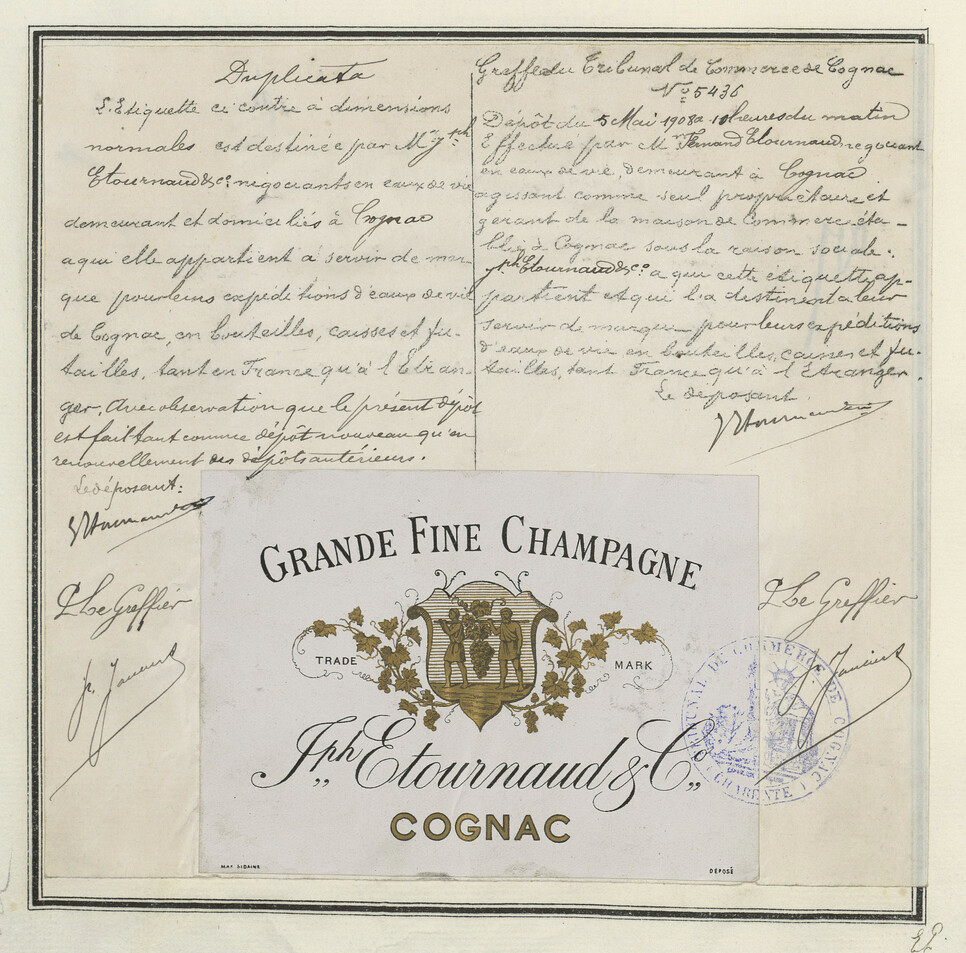 Duplicata
L'Etiquette ci contre a dimensions
normales est destinée par MM Jph
Etournaud & Co. négociants en eaux de vie
demeurant et domiciliés à Cognac
a qui elle appartient à servir de mar
que pour leurs expéditions d'eaux de vie
de Cognac, en bouteilles, caisses et fu-
tailles, tant en France qu'à l'Etran-
ger, Avec observation que le présent dépôt
est fait tant comme dépôt nouveau qu'en
renouvellement des dépôts antérieurs.
Le déposant:
Greffe du Tribunal de Commerce de Cognac
No 5436
Dépôt du 5 Mai 1908 a 10 heures du matin
Effectué par Mr Fernand Etournaud, négociant
en eaux de vie, demeurant à Cognac
agissant comme seul propriétaire et
gerant de la maison de Commerce éta-
blie à Cognac sous la raison sociale.
Jph Etournaud & Co a qui cette étiquette ap-
partient et qui l'a destinent a leur
servir de marque pour leurs expéditions
d'eaux de vie en bouteilles, caisses et fu-
tailles, tant France qu'à l'Etranger.
Le déposant
P Le Greffier
P Le Greffier
GRANDE FINE CHAMPAGNE
TRADE MARK
Jph Etournaud & Co
COGNAC
DÉPOSÉ
TRIBUNAL DE COMMERCE DE COGNAC
CHARENTE